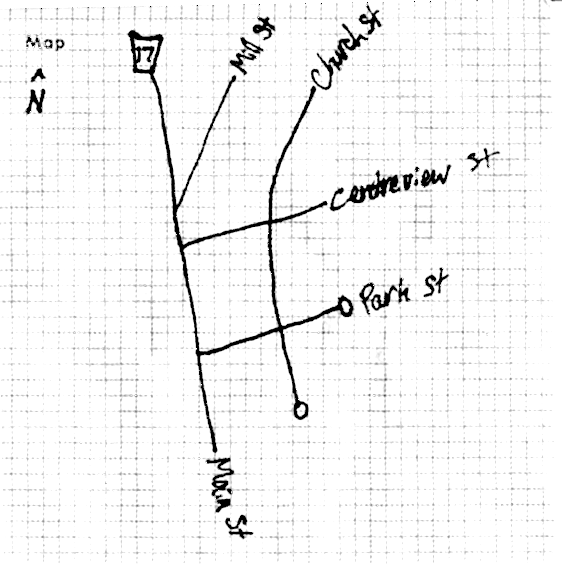 Map
N
17
Mill St
Church St
Centreview St
Park St
Main St